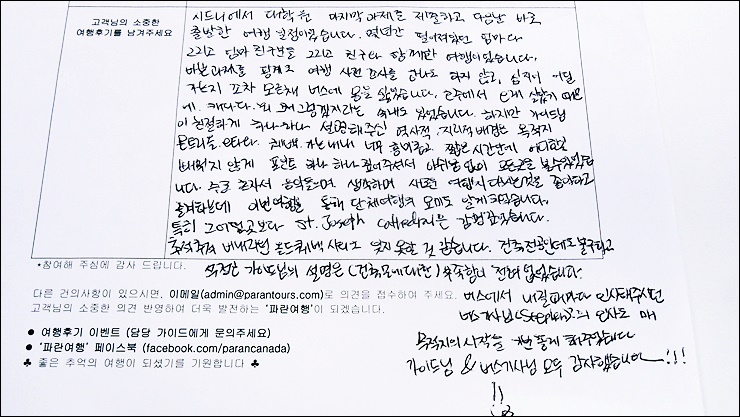 고객님의 소중한
여행후기를 남겨주세요
시드니에서 대학을 마지막 과제를 제출하고 떠난 바로
출발한 여행 일정이었습니다. 몇년간 떨어져있던 엄마와
그리고 엄마 친구분들 그리고 친구와 함께한 여행이었습니다.
바쁜 과제를 핑계로 여행 사전 조사를 하나도 하지 않고, 심지어 어딜
가는지 조차 모른채 버스에 몸을 실었습니다. 호주에서 오래 살았기 때문
에 캐나다 뭐 그런
이 친절하게 하나하나 설명해주신 역사적 지리적 배경은 목적지
몬트리올, 오타와, 퀘벡 너무 흥미롭고 짧은시간안에 어디하나
빼먹지 않게 포인트 하나 하나 짚어주셔서 아쉬움 없이 모든곳을 볼수있었습
니다. 주로 혼자서 음악들으며 생각하며 새로운 여행지 다니는것을 좋아하고
즐겨하는데 이번여행을 통해 단체여행의 묘미도 알게되었습니다.
특히 그 어떤곳보다 St. Joseph 은 감명깊었습니다.
추적추적 비내리던 올드퀘벡 사이도 잊지 못할 것 같습니다. 건축전공인데도 불구하고
가이드님의 설명은 (건축물에 대한) 부족함이 전혀 없었습니다.
*참여해 주심에 감사 드립니다.
다른 건의사항이 있으시면, 이메일(admin@parantours.com)로 의견을 접수하여 주세요.
고객님의 소중한 의견 반영하여 더욱 발전하는 '파란여행'이 되겠습니다.
버스에서 내릴때마다 인사해주시던
버스기사님(Stephen)의 인사도 매
● 여행후기 이벤트 (담당 가이드에게 문의주세요)
● '파란여행' 페이스북 (facebook.com/parancanada)
♣ 좋은 추억의 여행이 되셨기를 기원합니다 ♣
목적지의 시작을 해주었습니다
가이드님 & 버스기사님 모두 감사했습니다~!!!